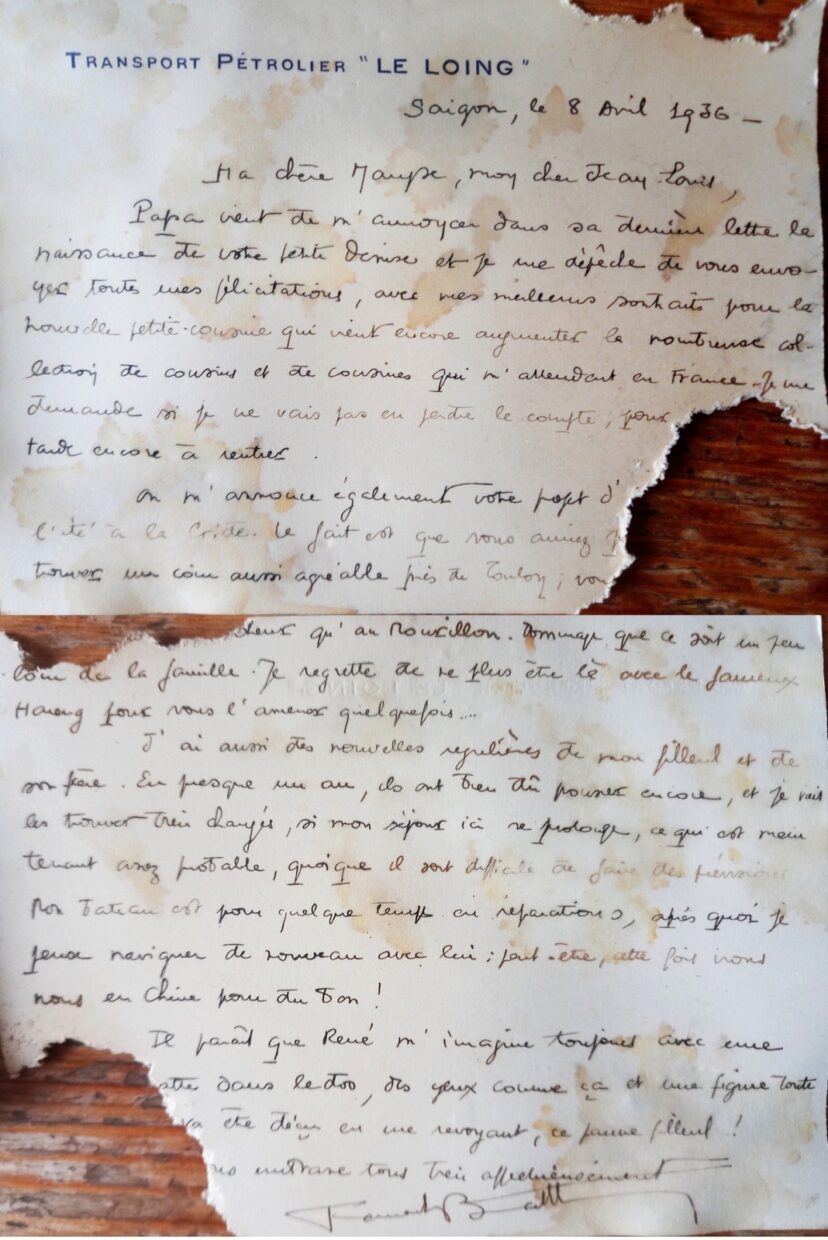 TRANSPORT PÉTROLIER "LE LOING"
Saigon, le 8 Avril 1936 —
Ma chère , mon cher Jean Louis,
Papa vient de m'annoncer dans sa dernière lettre la
naissance de votre petite Denise et je me dépêche de vous envo-
yer toutes mes félicitations, avec mes meilleurs souhaits pour la
nouvelle petite-cousine qui vient encore augmenter la nombreuse col-
lection de cousins et de cousines qui m'attendent en France. Je me
demande si je ne vais pas en perdre le compte, pour
tarde encore à rentrer.
On m'annonce également votre projet d'
l'été à la . Le fait est que vous auriez
trouver un coin aussi agréable près de Toulon ; vou
qu'au Mourillon. Dommage que ce soit un peu
loin de la famille. Je regrette de ne plus être là avec le fameux
Hareng pour vous l'amener quelquefois....
J'ai aussi des nouvelles régulières de mon filleul et de
son frère. En presque un an, ils ont bien dû pousser encore, et je vais
les trouver bien changés, si mon séjour ici se prolonge, ce qui est main
tenant assez probable, quoique il soit difficile de faire des prévisions
Mon bateau est pour quelque temps en réparations, après quoi je
peux naviguer de nouveau avec lui ; peut-être, cette fois irons
nous en Chine pour du bon !
Il paraît que René m'imagine toujours avec une
dans le dos, des yeux comme ça et une figure toute
va être déçu en me revoyant, ce jeune filleul !
tous bien affectueusement